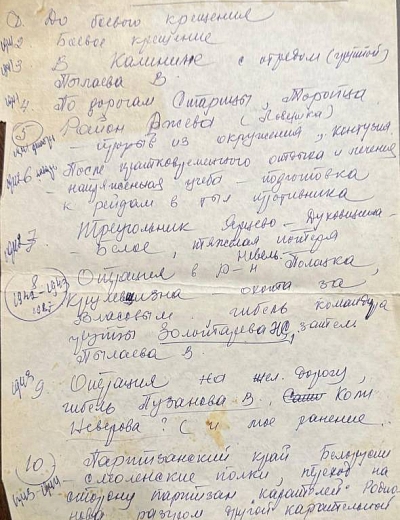 1. До боевого крещения
1942 2 Боевое крещение
1942 3 В Калинине с отрядом (группой)
Пылаева В.
4. По дорогам Старицы, Торопца
5 Район Ржева (Ловушка)
– прорыв из окружения, контузия
1942 6 После кратковременного отдыха и лечения
напряженная учеба – подготовка
к рейдам в тыл противника
1942 7 Треугольник Ярцево – Духовщина –
– Белое, тяжелая потеря
8 Операция в р-н Невель – Полоцка,
1942–1943 охота за
Власовым. гибель командира
группы Золотарева НС, затем
Пылаева В
1943 9 Операция на жел. дорогу,
гибель Пузанова В, Коли
Неверова? (и мое ранение
10 Партизанский край Белоруссии
1943-1944 смоленские полки, переход на
сторону партизан "карателей" Родио
нова разгром другой карательной